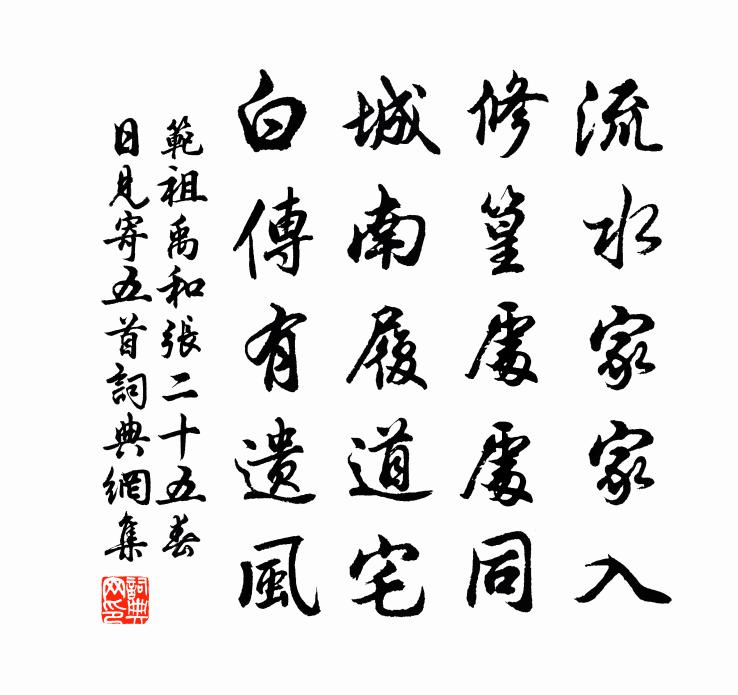 流水家家入
修篁處處同
城南履道宅
白傳有遺風
範祖禹和張二十五春
日見寄五首詞典網集
詞典
网印